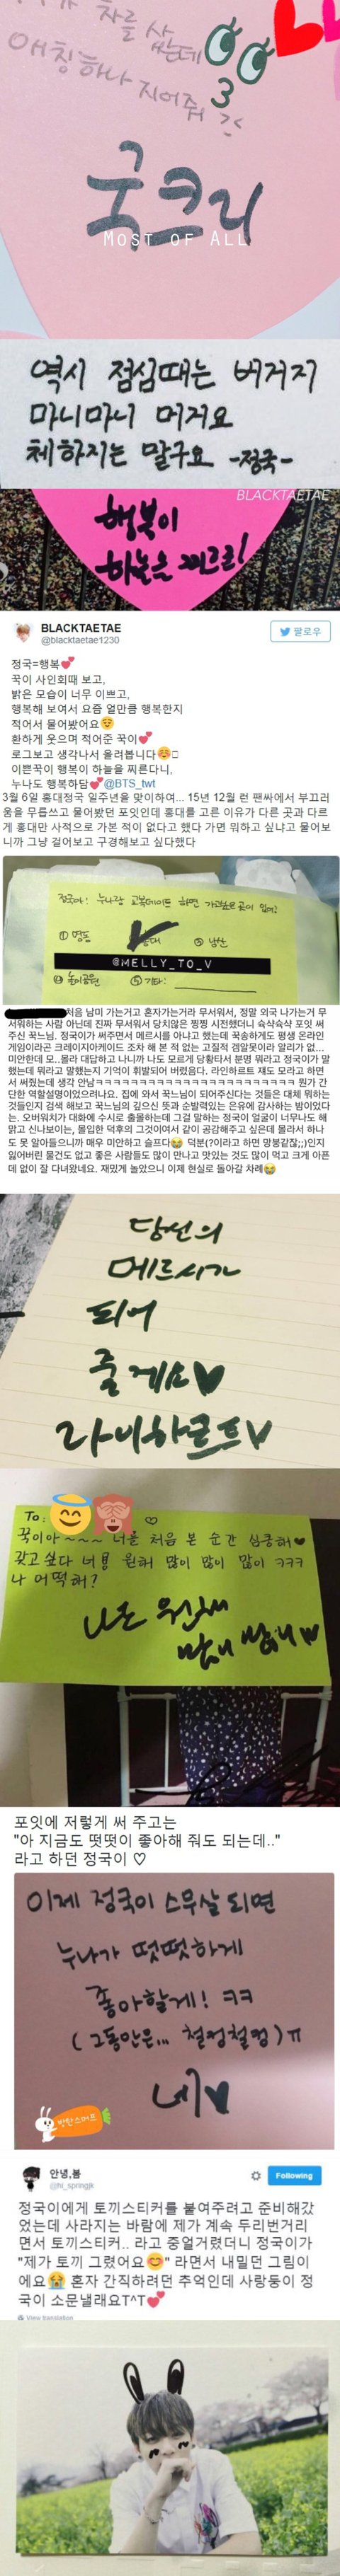 차를 샀는데
애칭하나 지어줘
국크리
MOST OF ALL
역시 점심때는 버거지
마니마니 머거요
체하지는 말구요 -정국-
BLACKTAETAE
행복이
하늘을 찌르르!
BLACKTAETAE
@blacktaetae1230
팔로우
정국=행복💕
꾹이 사인회때 보고,
밝은 모습이 너무 이쁘고,
행복해 보여서 요즘 얼만큼 행복한지
적어서 물어봤어요😌
환하게 웃으며 적어준 꾹이💕
로그보고 생각나서 올려봅니다☺️
이쁜꾹이 행복이 하늘을 찌른다니,
누나도 행복하담💕@BTS_twt
3월 6일 홍대정국 일주년을 맞이하여... 15년 12월 런 팬싸에서 부끄러
움을 무릅쓰고 물어봤던 포잇인데 홍대를 고른 이유가 다른 곳과 다르
게 홍대만 사적으로 가본 적이 없다고 했다 가면 뭐하고 싶냐고 물어보
니까 그냥 걸어보고 구경해보고 싶다했다
정국아! 누나랑 교복데이트 하면 가고싶은 곳이 있어?
① 명동
홍대
③ 남산
@MELLY_TO_V
④ 놀이공원
⑤ 기타:
처음 남미 가는거고 혼자가는거라 무서워서, 정말 외국 나가는거 무
서워하는 사람 아닌데 진짜 무서워서 당치않은 찡찡 시전했더니 슉샥슉샥 포잇 써
주신 꾹느님. 정국이가 써주면서 메르시를 아냐고 했는데 꾹송하게도 평생 온라인
게임이라곤 크레이지아케이드 조차 해 본 적 없는 고질적 겜알못이라 알리가 없...
미안한데 모..몰라 대답하고 나니까 나도 모르게 당황타서 분명 뭐라고 정국이가 말
했는데 뭐라고 말했는지 기억이 휘발되어 버렸음다. 라인하르트 쟤도 모라고 하면
서 써줬는데 생각 안남ㅋㅋㅋㅋㅋㅋㅋㅋㅋㅋㅋㅋㅋㅋㅋㅋㅋㅋㅋㅋㅋㅋㅋ 뭔가 간
단한 역할설명이었으려나요. 집에 와서 꾹느님이 되어주신다는 것들은 대체 뭐하는
것들인지 검색 해보고 꾹느님의 깊으신 뜻과 순발력있는 은유에 감사하는 밤이었다
는. 오버워치가 대화에 수시로 출몰하는데 그걸 말하는 정국이 얼굴이 너무나도 해
맑고 신나보이는, 몰입한 덕후의 그것이여서 같이 공감해주고 싶은데 몰라서 하나
도 못 알아들으니까 매우 미안하고 슬프다😂 덕분(?이라고 하면 망붕같잖;;)인지
잃어버린 물건도 없고 좋은 사람들도 많이 만나고 맛있는 것도 많이 먹고 크게 아픈
데 없이 잘 다녀왔네요. 재밌게 놀았으니 이제 현실로 돌아갈 차례😂
당신의
메르시가
되어
줄게요♥
라이하르트V
To:
꾹이아~~~ 너를 처음 본 순간 심쿵해♥
갖고 싶다 너를 원해 많이 많이 많이 ㅋㅋㅋ
나 어떡해?
포잇에 저렇게 써 주고는
"아 지금도 떳떳이 좋아해 줘도 되는데.."
라고 하던 정국이 ♡
이제 정국이 스무살 되면
누나가 떳떳하게
좋아할게! ㅋㅋ
(그동안은... 철컹철컹)ㅠ
네♥
방탄스머프
안녕,봄
@hi_springjk
Following
정국이에게 토끼스티커를 붙여주려고 준비해갔
었는데 사라지는 바람에 제가 계속 두리번거리
면서 토끼스티커.. 라고 중얼거렸더니 정국이가
"제가 토끼 그렸어요☺️" 라면서 내밀던 그림이
에요😭 혼자 간직하려던 추억인데 사랑둥이 정
국이 소문낼래요T^T💕
View translation